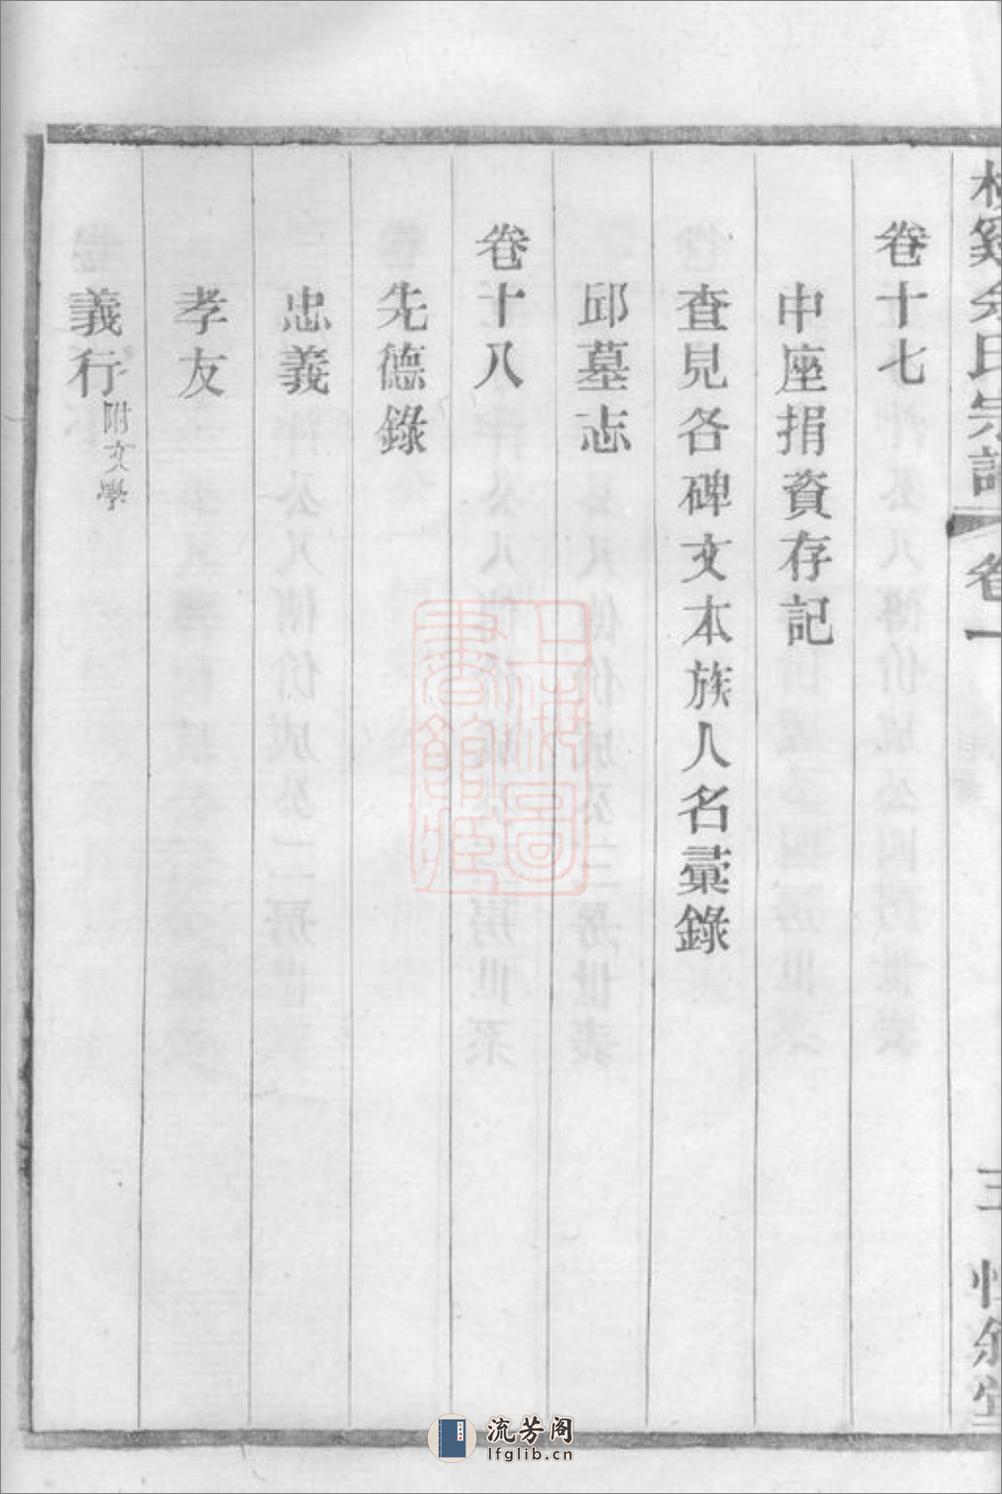 氏宗譜 卷一 三
卷十七
中座捐資存記
查見各碑文本族人名彚錄
邱墓志
卷十八
先德錄
忠義
孝友
義行附文學
上海圖書館藏
流芳阁
lfglib.cn